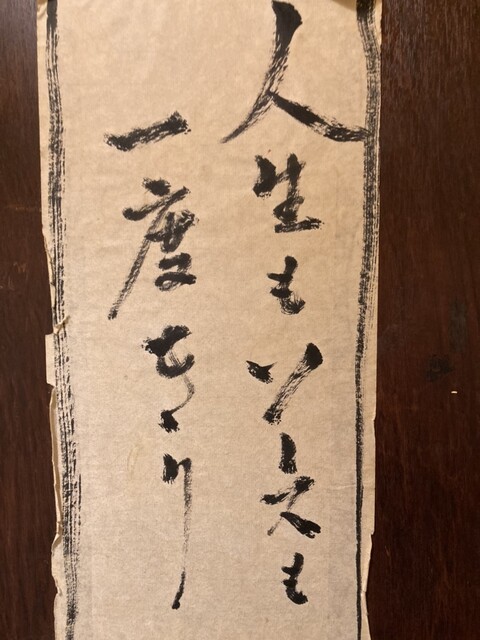 人生もソースも
一度きり